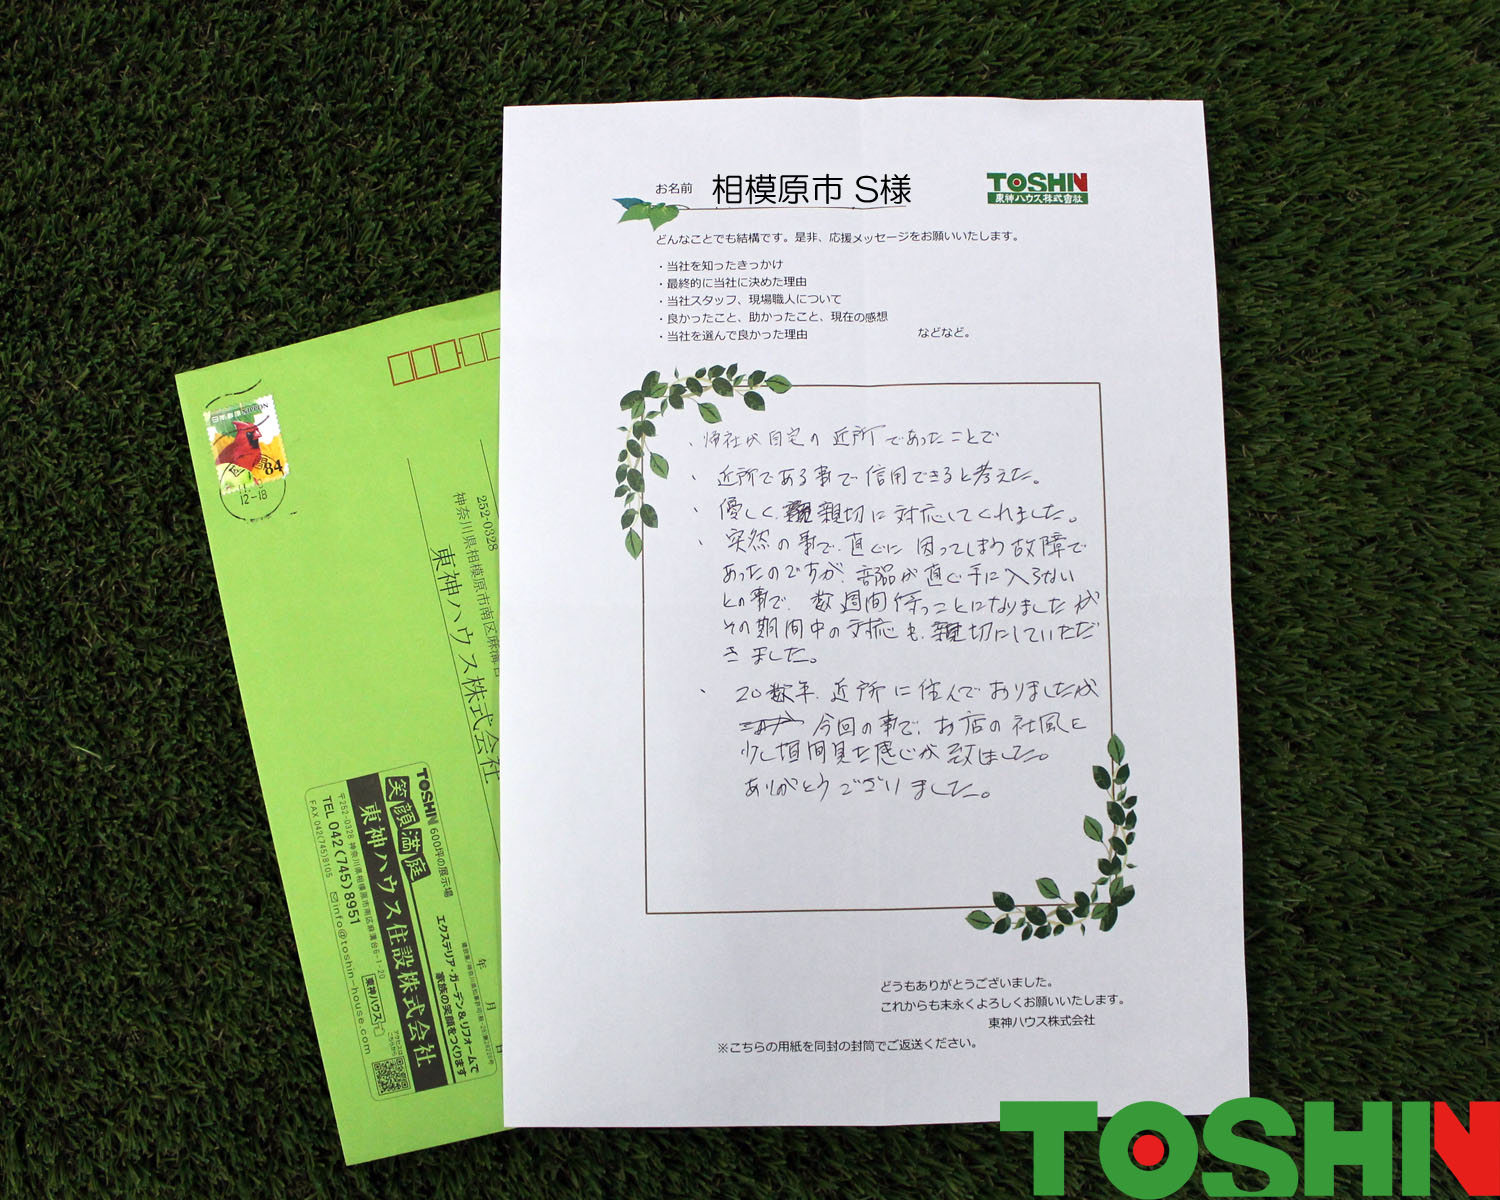 お名前 相模原市 S様
TOSHIN
東神ハウス株式會社
どんなことでも結構です。是非、応援メッセージをお願いいたします。
・当社を知ったきっかけ
・最終的に当社に決めた理由
・当社スタッフ、現場職人について
・良かったこと、助かったこと、現在の感想
・当社を選んで良かった理由 などなど。
、御社が自宅の近所であったことで
、近所である事で信用できると考えた。
、優しく、親切に対応してくれました。
、突然の事で、直ぐに困ってしまう故障で
あったのですが、部品が直ぐ手に入らない
との事で、数週間待つことになりましたが
その期間中の対応も、親切にしていただ
きました。
、20数年、近所に住んでおりましたが
今回の事で、お店の社風を
少し垣間見た感じが致しました。
ありがとうございました。
どうもありがとうございました。
これからも末永くよろしくお願いいたします。
東神ハウス株式会社
※こちらの用紙を同封の封筒でご返送ください。
NIPPON
84
12-18
252-0328
神奈川県相模原市南区麻溝台
東神ハウス株式会社
年 月 日
TOSHIN 600坪の展示場
笑顔満庭
エクステリア・ガーデン&リフォームで
家族の笑顔をつくります
東神ハウス住設株式会社
〒252-0328 神奈川県相模原市南区麻溝台6-1-20
TEL 042(745)8951
FAX 042(745)8105
info@toshin-house.com
東神ハウス
TOSHIN